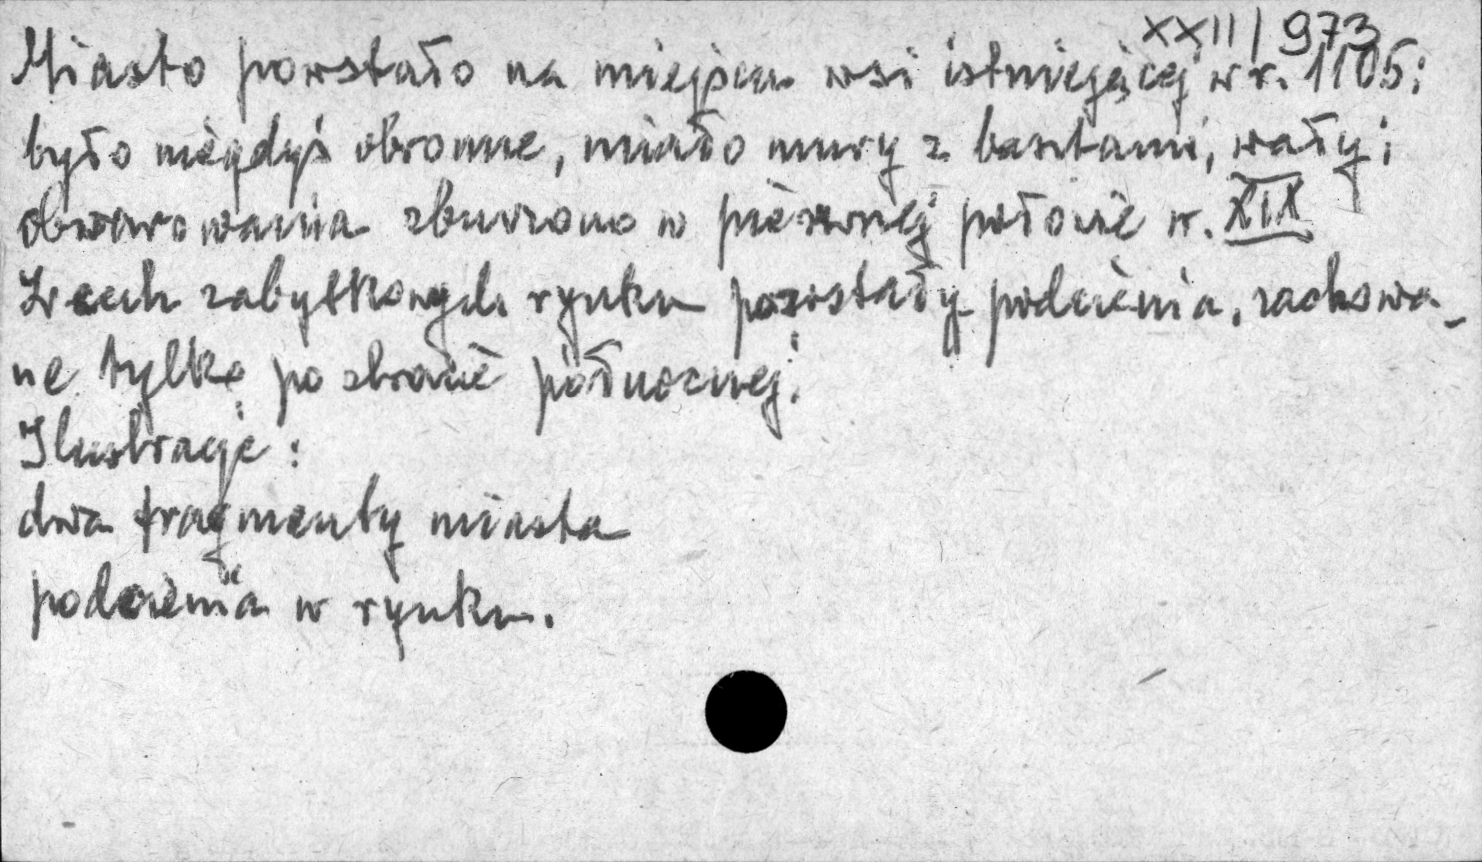 XXII/973
Miasto powstało na miejscu wsi istniejącej w r. 1105;
było niegdyś obronne, miało mury z basztami, wały;
obwarowania zburzono w pierwszej połowie w. XIX
Z cech zabytkowych rynku pozostały podcienia, zachowa-
ne tylko po stronie północnej.
Ilustracje:
dwa fragmenty miasta
podcienia w rynku.